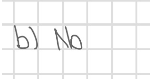 b) No